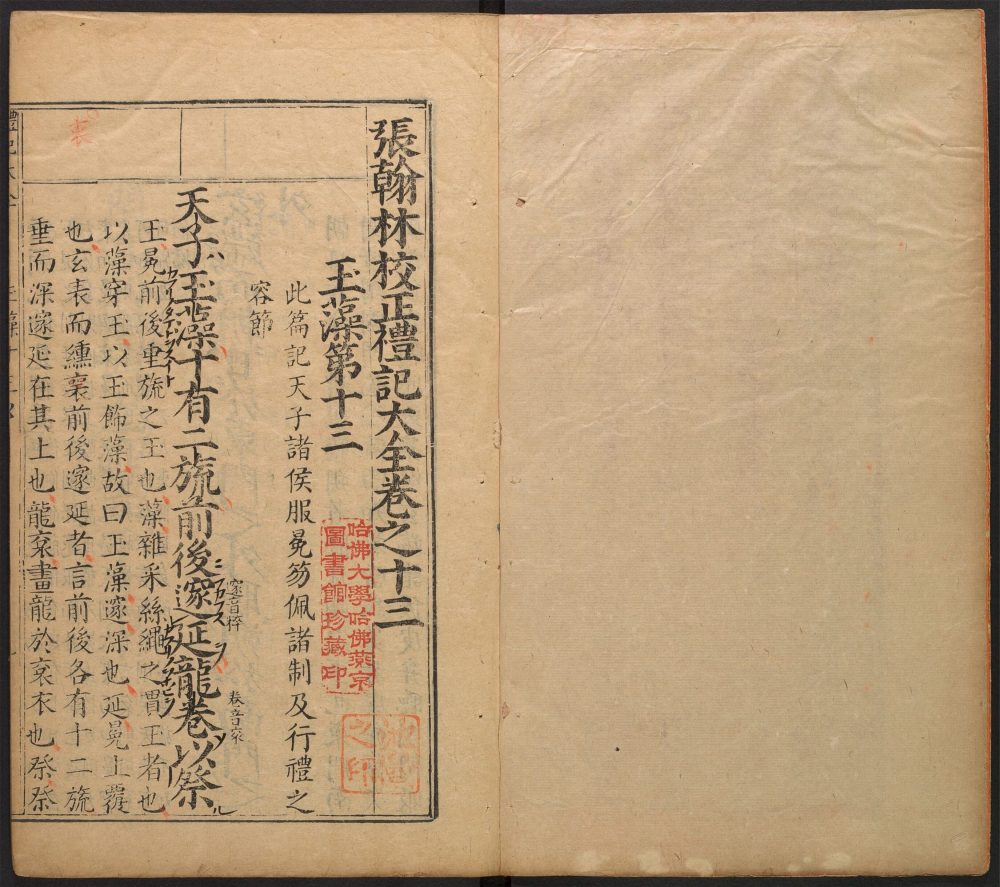 張翰林校正禮記大全卷之十三
玉藻第十三
此篇記天子諸侯服冕笏佩諸制及行禮之
容節
天子玉藻十有二旒前後邃延龍卷以祭
邃音粹
卷音袞
玉冕前後垂旒之玉也藻雜采絲繩之貫玉者也
以藻穿玉以玉飾藻故曰玉藻邃深也延冕上覆
也玄表而纁裏前後邃延者言前後各有十二旒
垂而深邃延在其上也龍袞畫龍於袞衣也祭祭
哈佛大學哈佛燕京
圖書館珍藏印
之印
裏